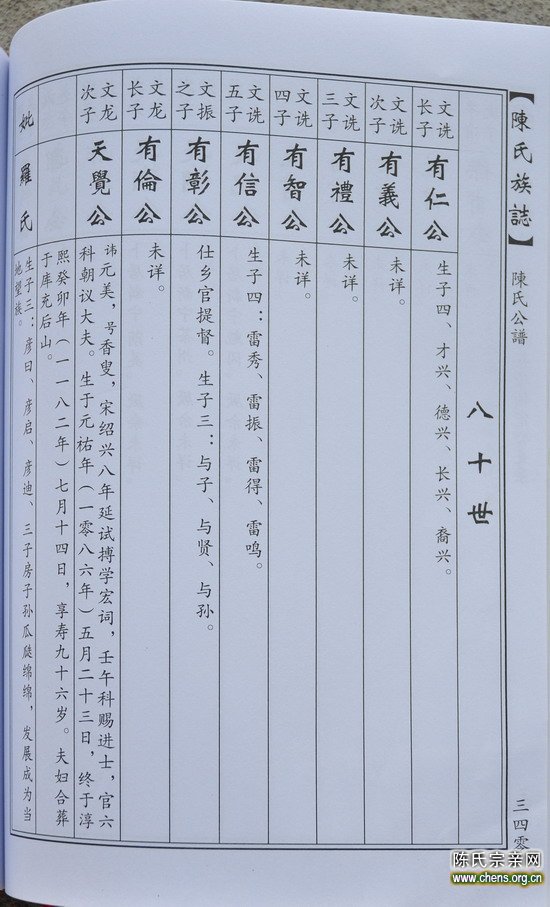 【陳氏族誌】
陳氏公譜
三四零
八十世
文诜
长子
有仁公
生子四、才兴、德兴、长兴、裔兴。
文诜
次子
有義公
未详。
文诜
三子
有禮公
未详。
文诜
四子
有智公
未详。
文诜
五子
有信公
生子四：雷秀、雷振、雷得、雷鸣。
文振
之子
有彰公
仕乡官提督。生子三：与子、与贤、与孙。
文龙
长子
有倫公
未详。
文龙
次子
天覺公
讳元美，号香叟，宋绍兴八年延试搏学宏词，壬午科赐进士，官六
科朝议大夫。生于元祐年（一零八六年）五月二十三日，终于淳
熙癸卯年（一一八二年）七月十四日，享寿九十六岁。夫妇合葬
于库充后山。
妣羅氏
生子三：彦曰、彦启、彦迪、三子房子孙瓜瓞绵绵，发展成为当
地望族。
陈氏宗亲网
www.chens.org.cn